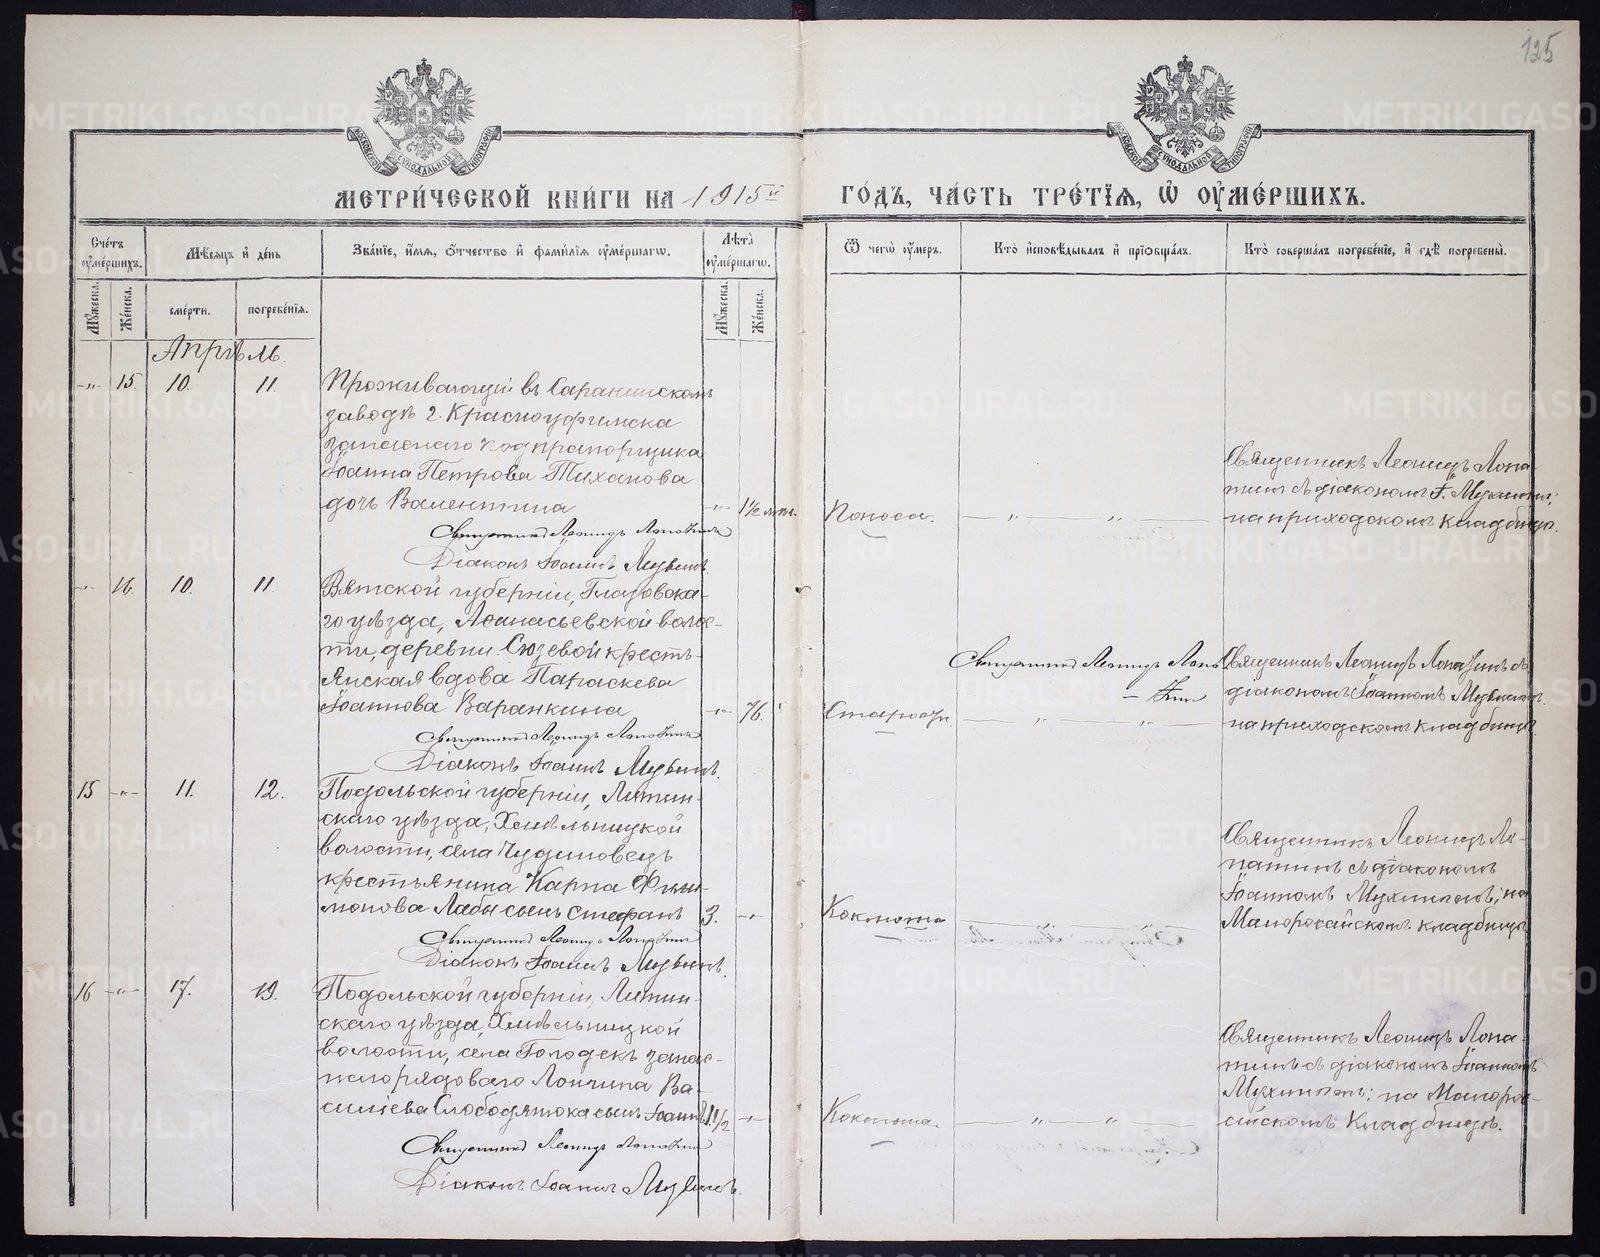 125
МОСКОВСКОЙ СѴНОДАЛЬНОЙ ТИПОГРАФІИ
МОСКОВСКОЙ СѴНОДАЛЬНОЙ ТИПОГРАФІИ
МЕТРИ́ЧЕСКОЙ КНИ́ГИ НА 1915й ГО́ДЪ, ЧА́СТЬ ТРЕ́ТЇѦ, Ѡ҆ ОУ҆МЕ́РШИХЪ.
Сче́тъ оу҆ме́ршихъ.
Мѣ́сѧцъ и҆ де́нь
Зва́нїе, и҆́мѧ, ѻ҆́тчество и҆ фами́лїѧ оу҆ме́ршагѡ.
Лѣ́та оу҆ме́ршагѡ.
Ѿ чегѡ̀ оу҆́меръ.
Кто̀ и҆сповѣ́дывалъ и҆ прїѻбща́лъ.
Кто̀ соверша́лъ погребе́нїе, и҆ гдѣ̀ погребены̀.
Мꙋ́жеска.
Же́нска.
сме́рти.
погребе́нїѧ.
Мꙋ́жеска.
Же́нска.
Апрѣль.
-"- 15 10. 11. Проживающій въ Саранинскомъ
заводѣ г. Красноуфимска
запаснаго подпрапорщика
Іоанна Петрова Тиханова
дочь Валентина -"- 1½ лѣт.
Священникъ Леонидъ Лопатинъ
Діаконъ Іоаннъ Мухинъ.
Поноса.
-"- -"-
Священникъ Леонидъ Лопа-
тинъ съ діакономъ І. Мухинымъ;
на приходскомъ кладбищѣ.
-"- 16. 10. 11 Вятской губерніи, Глазовска-
го уѣзда, Аѳанасьевской волос-
ти, деревни Сюзевой кресть-
янская вдова Параскева
Іоаннова Варанкина -"- 76.
Священникъ Леонидъ Лопатинъ
Діаконъ Іоаннъ Мухинъ.
Старости.
Священникъ Леонидъ Лопа-
тинъ
-"- -"-
Священникъ Леонидъ Лопатинъ съ
діакономъ Іоанномъ Мухинымъ.
на приходскомъ кладбищѣ.
15 -"- 11. 12. Подольской губерніи, Литин-
скаго уѣзда, Хмѣльницкой
волости, села Чудиновецъ
крестьянина Карпа Фили-
монова Лабы сынъ Стефанъ 3. -"-
Священникъ Леонидъ Лопатинъ
Діаконъ Іоаннъ Мухинъ.
Коклюша
-"-
Священникъ Леонидъ Ло-
патинъ съ діакономъ
Іоанномъ Мухинымъ; на
Малоросійскомъ кладбищѣ
16 -"- 17. 19. Подольской губерніи, Литин-
скаго уѣзда, Хмѣльницкой
волости, села Голодекъ запас-
наго рядоваго Лонгина Ва-
силіева Слободянюка сынъ Іоаннъ 1½ -"-
Священникъ Леонидъ Лопатинъ
Діаконъ Іоаннъ Мухинъ.
Коклюша.
-"- -"-
Священникъ Леонидъ Лопа-
тинъ съ діакономъ Іоанномъ
Мухинымъ; на Малоро-
сійскомъ Кладбищѣ.
METRIKI.GASO-URAL.RU